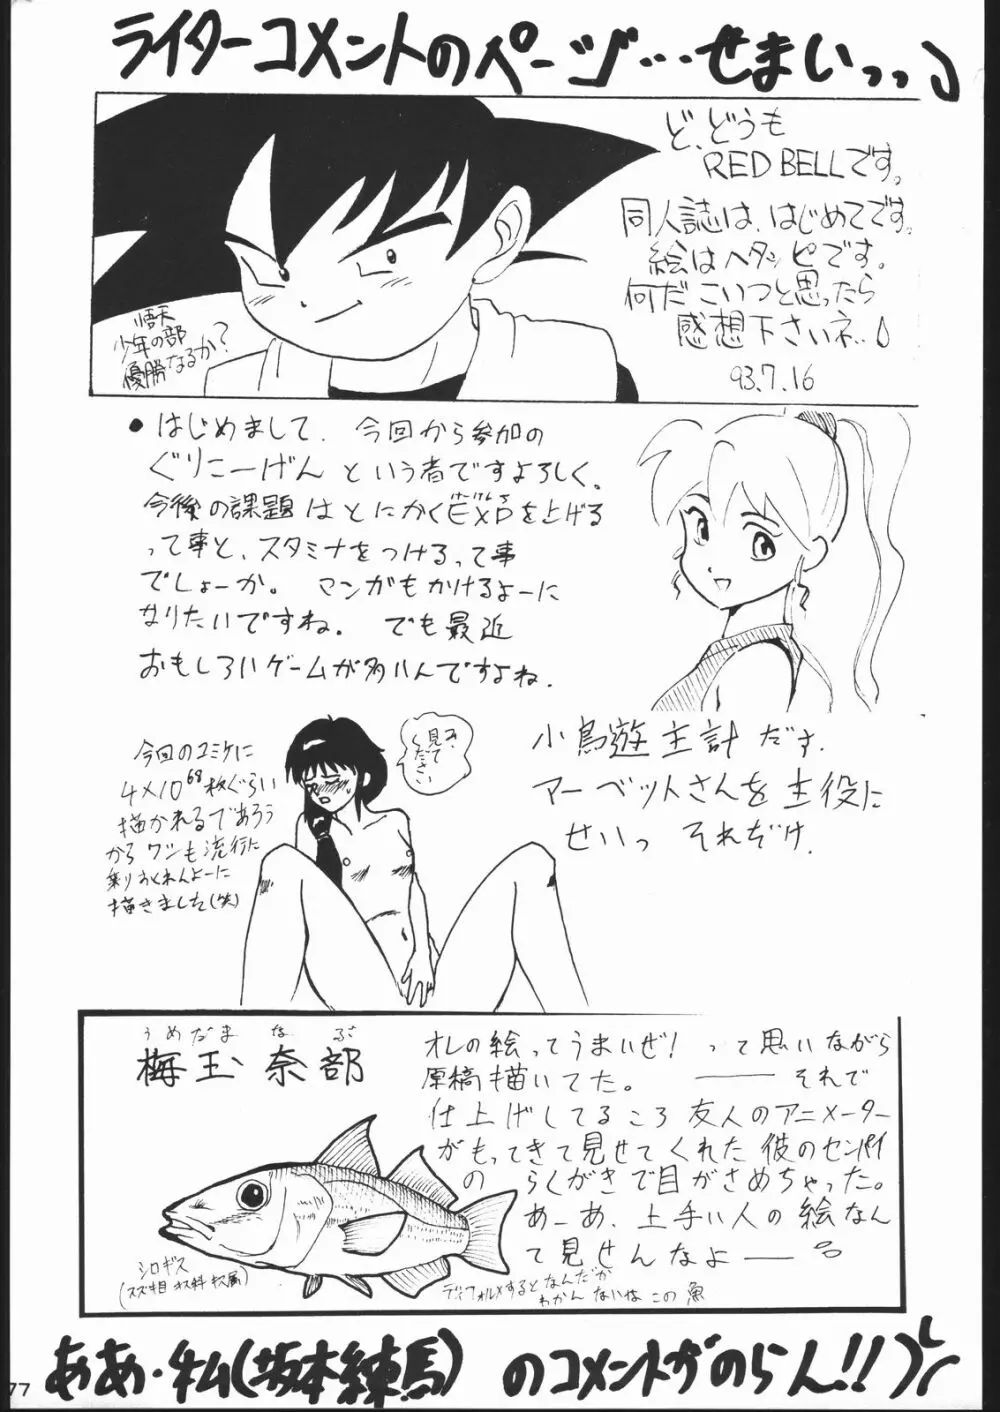 ライターコメントのページ…せまいっっ
ど、どうも
RED BELLです。
同人誌は、はじめてです。
絵はヘタッピです。
何だこいつと思ったら
感想下さいネ
93.7.16
悟天
少年の部
優勝なるか？
●はじめまして、今回から参加の
ぐりこーげんという者ですよろしく。
今後の課題はとにかくEXPを上げる
って事と、スタミナをつけるって事
でしょーか。マンガもかけるよーに
なりたいですね。でも最近
おもしろいゲームが多いんですよね.
今回のコミケに
4×10⁶⁸枚ぐらい
描かれるであろう
からワシも流行に
乗りおくれんよーに
描きました(笑)
見て
ください
小鳥遊主計だす.
マーベットさんを主役に
せいっ それだけ.
うめだま なぶ
梅玉 奈部
オレの絵ってうまいぜ！って思いながら
原稿描いてた。――それで
仕上げしてるころ友人のアニメーター
がもってきて見せてくれた彼のセンパイ
のらくがきで目がさめちゃった。
あーあ、上手い人の絵なん
て見せんなよ――
シロギス
(スズキ目 キス科 キス属)
ディフォルメするとなんだか
わかんないなこの魚
ああ・私(坂本練馬)のコメントがのらん!!
77